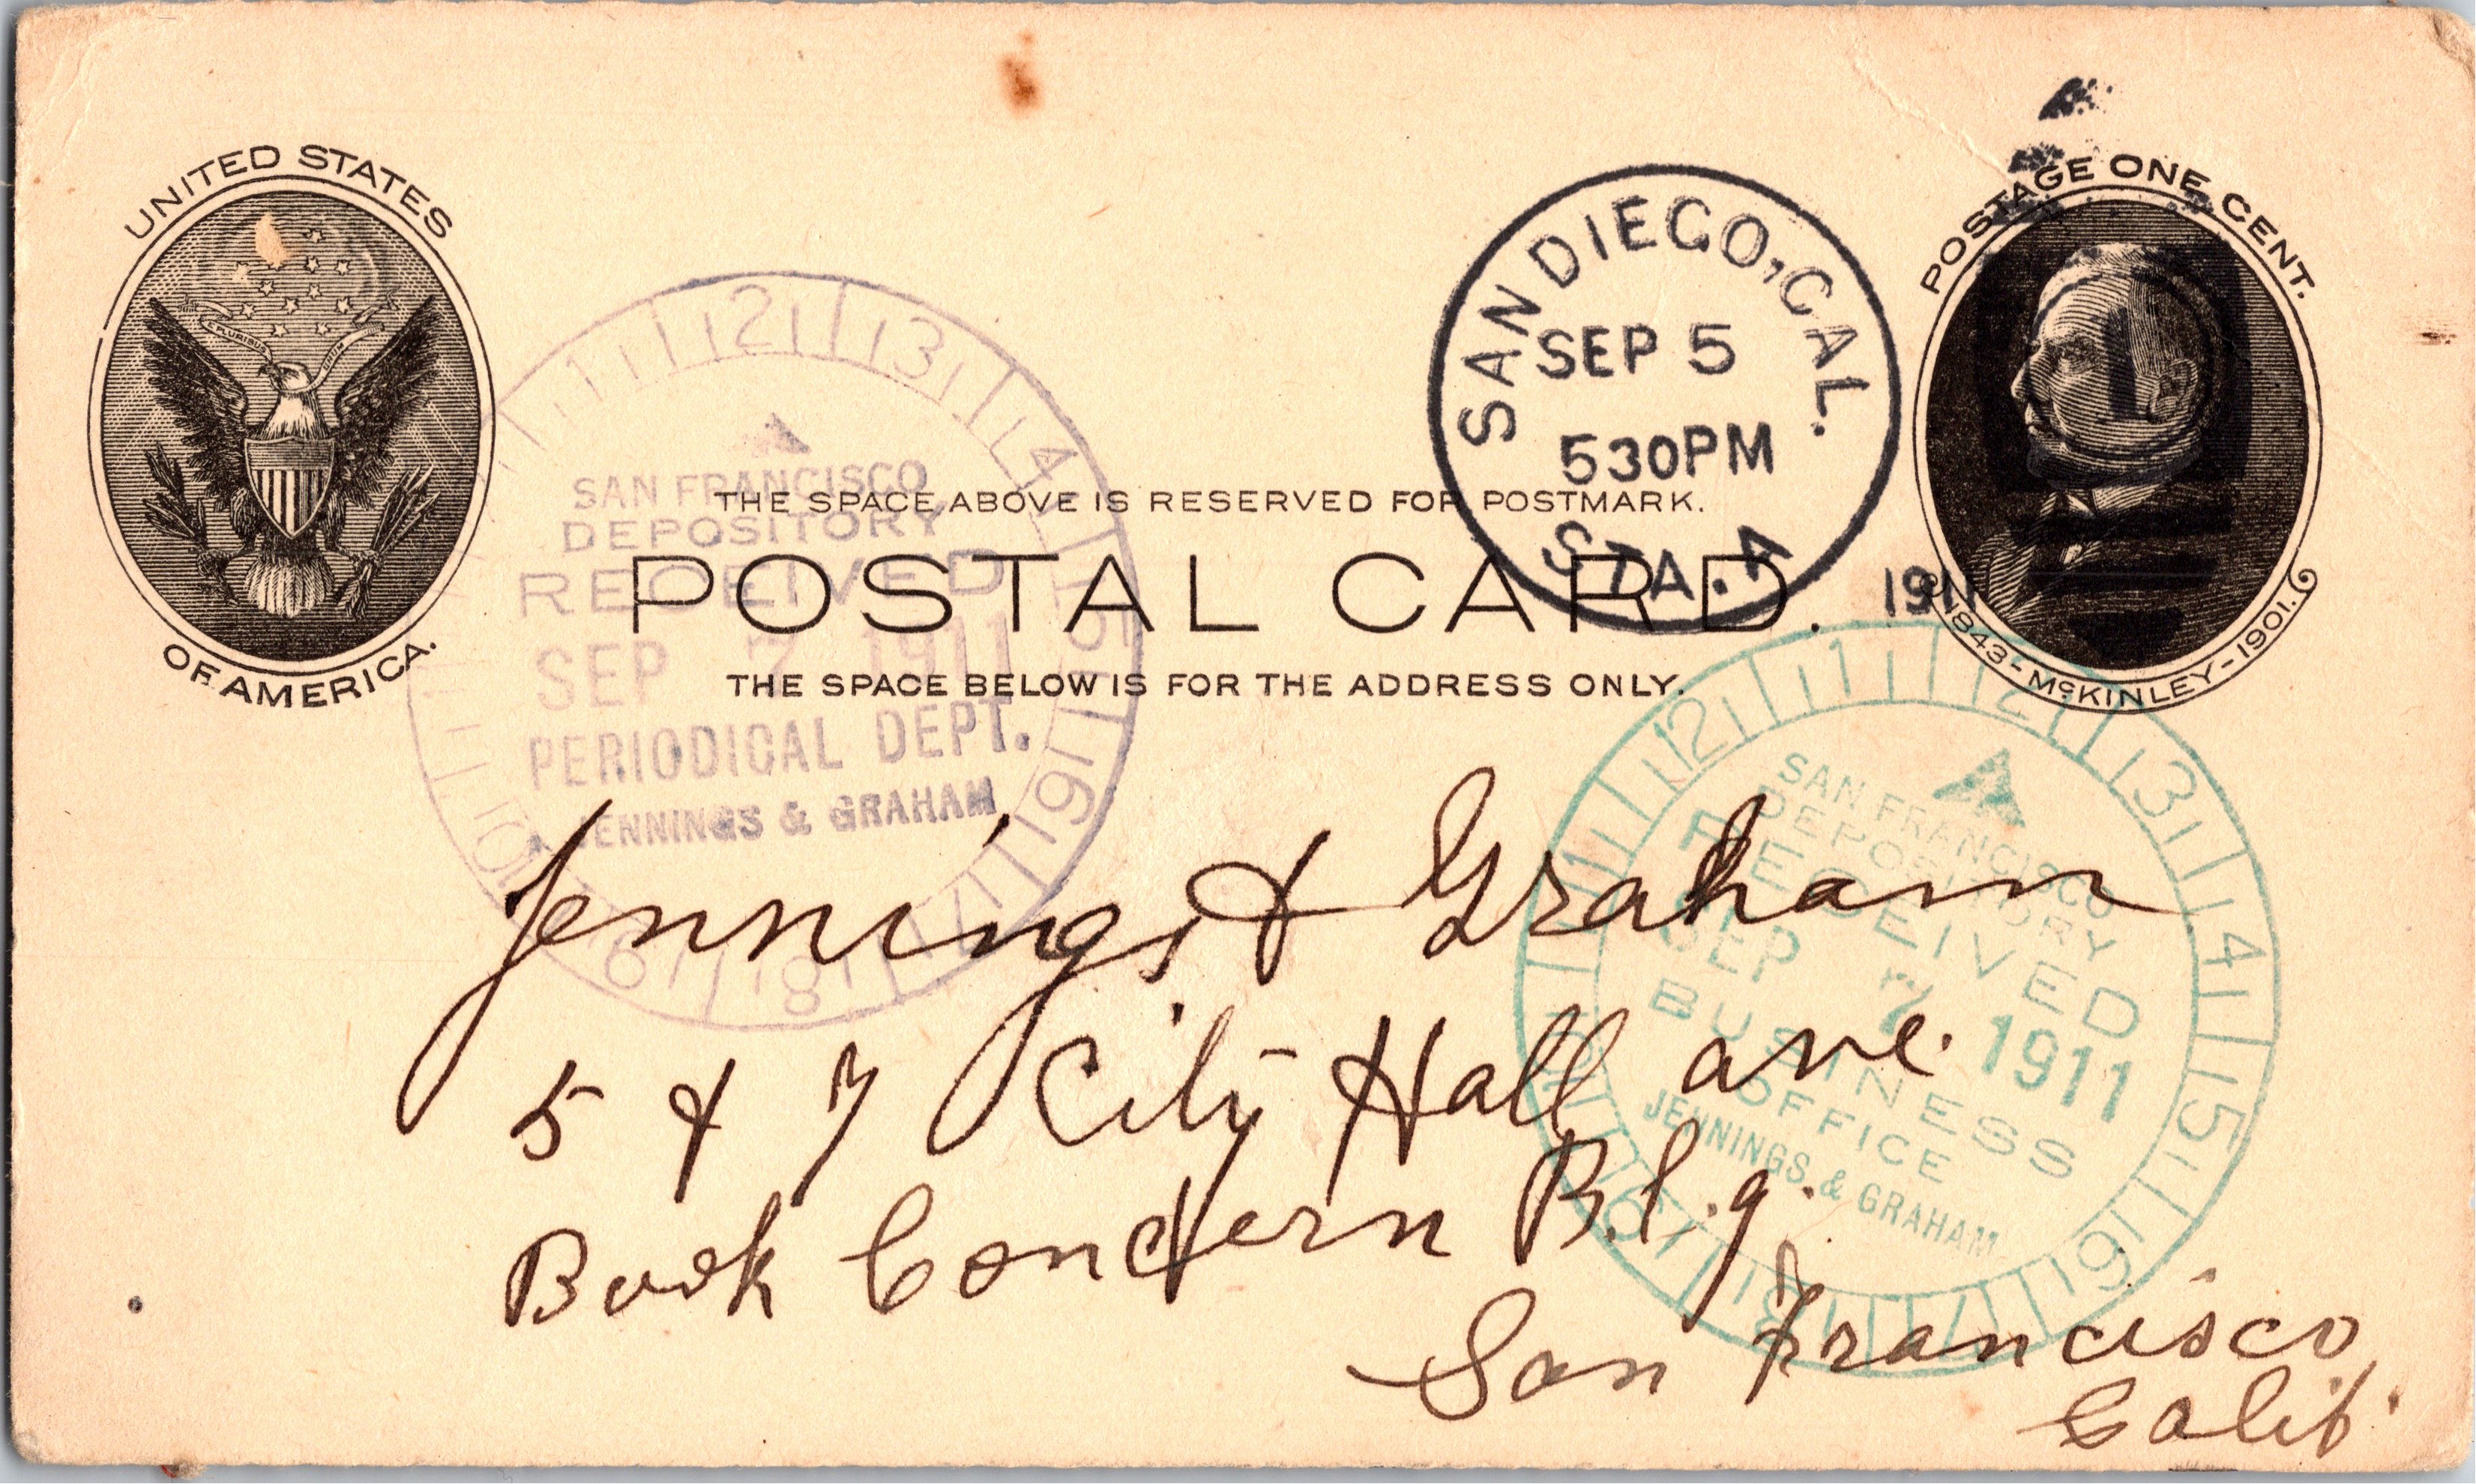 UNITED STATES
OF AMERICA.
E PLURIBUS UNUM
POSTAGE ONE CENT.
1843-McKINLEY-1901.
SAN DIEGO, CAL.
SEP 5
530PM
STA. A
1911
1
THE SPACE ABOVE IS RESERVED FOR POSTMARK.
POSTAL CARD.
THE SPACE BELOW IS FOR THE ADDRESS ONLY.
12 1 2 3 4 5 6 7 8 9 10 11
SAN FRANCISCO
DEPOSITORY
RECEIVED
SEP 7 1911
PERIODICAL DEPT.
JENNINGS & GRAHAM
12 1 2 3 4 5 6 7 8 9 10 11
SAN FRANCISCO
DEPOSITORY
RECEIVED
SEP 7 1911
BUSINESS
OFFICE
JENNINGS & GRAHAM
Jennings & Graham
5 & 7 City Hall ave.
Book Concern B.l.g.
San Francisco
Calif.